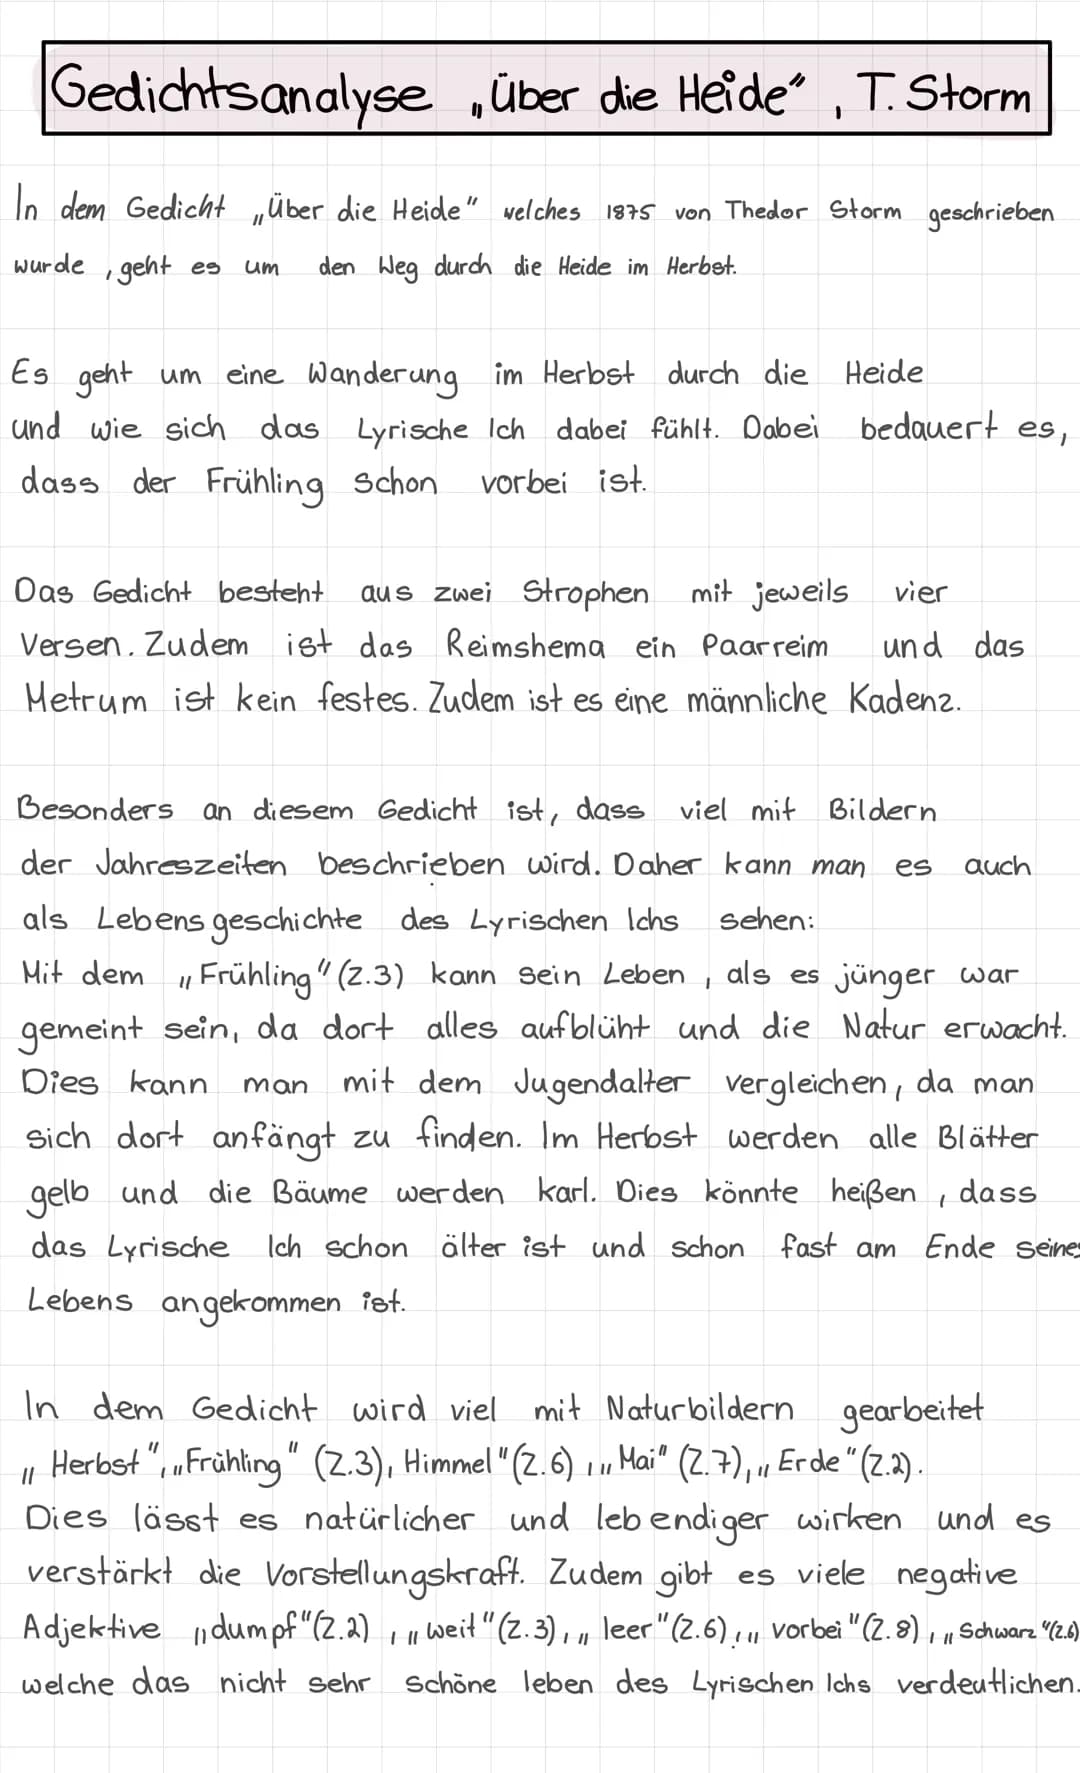 Gedichtsanalyse „Über die Heide“, T. Storm
In dem Gedicht „Über die Heide" welches 1875 von Thedor Storm geschrieben
wurde, geht es um den Weg durch die Heide im Herbst.
Es geht um eine Wanderung im Herbst durch die Heide
und wie sich das Lyrische Ich dabei fühlt. Dabei bedauert es,
dass der Frühling schon vorbei ist.
Das Gedicht besteht aus zwei Strophen mit jeweils vier
Versen. Zudem ist das Reimshema ein Paarreim und das
Metrum ist kein festes. Zudem ist es eine männliche Kadenz.
Besonders an diesem Gedicht ist, dass viel mit Bildern
der Jahreszeiten beschrieben wird. Daher kann man es auch
als Lebensgeschichte des Lyrischen Ichs sehen:
Mit dem „Frühling" (Z.3) kann sein Leben, als es jünger war
gemeint sein, da dort alles aufblüht und die Natur erwacht.
Dies kann man mit dem Jugendalter vergleichen, da man
sich dort anfängt zu finden. Im Herbst werden alle Blätter
gelb und die Bäume werden karl. Dies könnte heißen, dass
das Lyrische Ich schon älter ist und schon fast am Ende seines
Lebens angekommen ist.
In dem Gedicht wird viel mit Naturbildern gearbeitet
„Herbst", „Frühling" (Z.3), Himmel" (Z.6), „Mai" (Z.7), „Erde" (Z.2).
Dies lässt es natürlicher und lebendiger wirken und es
verstärkt die Vorstellungskraft. Zudem gibt es viele negative
Adjektive „dumpf" (Z.2), „weit" (Z.3), „leer" (Z.6), „vorbei" (Z.8), „Schwarz" (Z.6)
welche das nicht sehr schöne leben des Lyrischen Ichs verdeutlichen.